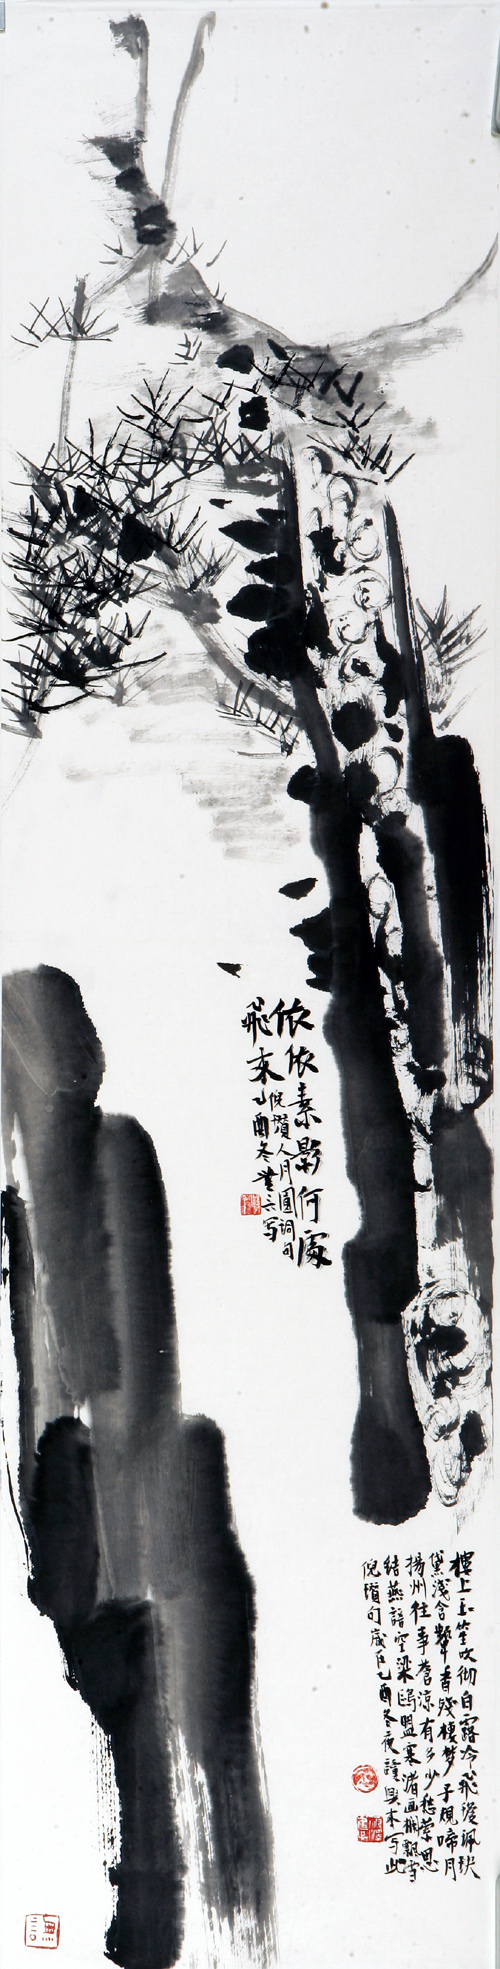 依依素影何處
飛来
倪瓚人月圓詞句
乙酉冬
樓上玉笙吹彻白露冷飛瓊珮玦
黛浅含顰香殘棲夢子規啼月
揚州往事荒涼有多少愁縈思
結燕語空梁鷗盟寒渚画栏飄雪
倪瓚句歲在乙酉冬夜
無言